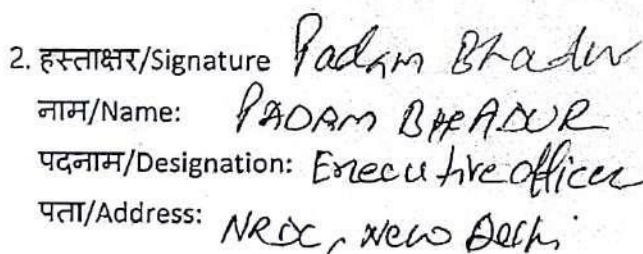 2. हस्ताक्षर/Signature Padam Bhadur
नाम/Name: PADAM BHADUR
पदनाम/Designation: Executive officer
पता/Address: NRDC, New Delhi